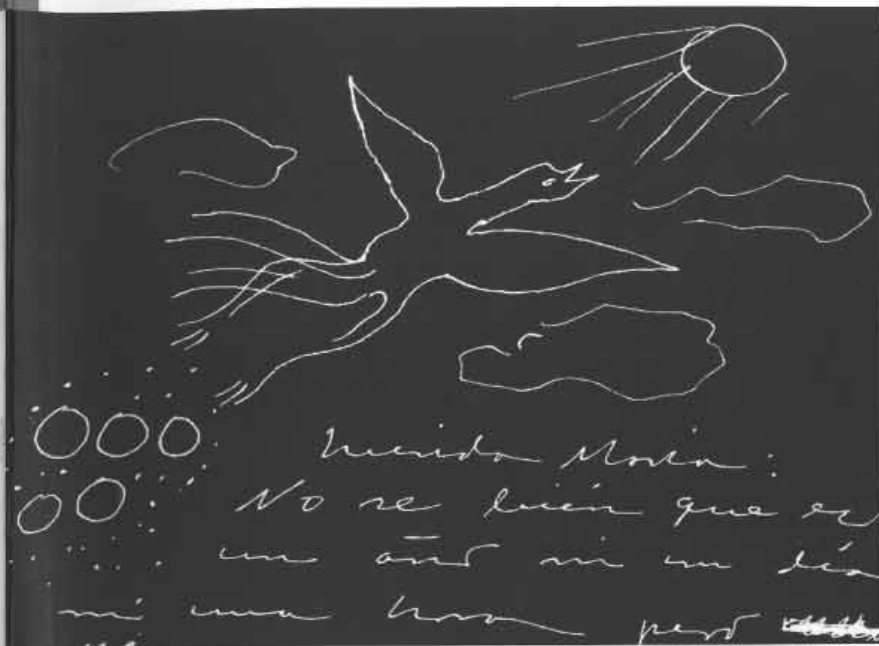 Querida María:
No se bien que es
un año ni un día
ni una hora pero